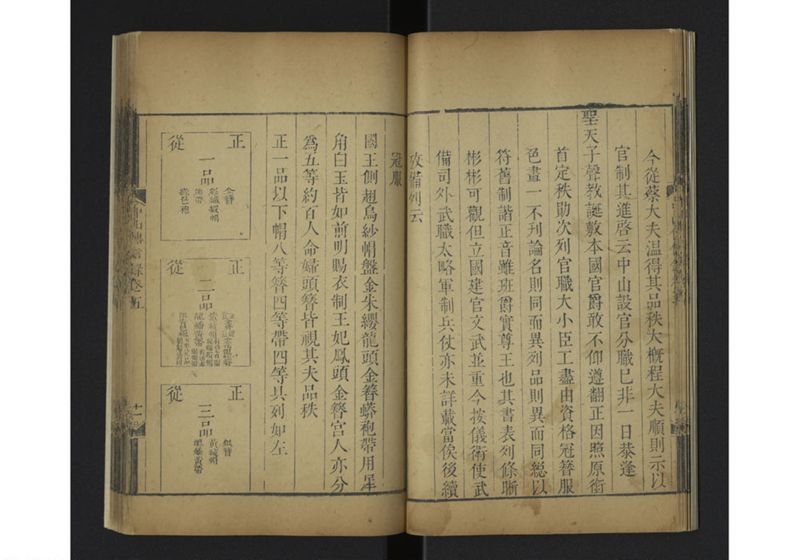 今從蔡大夫温得其品秩大概程大夫順則示以
官制其進啓云中山設官分職已非一日恭逢
聖天子聲教誕敷本國官爵敢不仰遵翻正因照原銜
首定秩勛次列官職大小臣工盡由資格冠簪服
色畫一不列論名則同而異列品則異而同總以
符舊制諧正音雖班爵實尊王也其書表列條晰
彬彬可觀但立國建官文武並重今按儀衛使武
備司外武職太略軍制兵仗亦未詳載當俟後續
攷備列云
冠服
國王側翅烏紗帽盤金朱纓龍頭金簪蟒袍帶用犀
角白玉皆如前明賜衣制王妃鳳頭金簪宫人亦分
為五等約百人命婦頭簪皆視其夫品秩
正一品以下帽八等簪四等帶四等具列如左
正 一品 從
金簪
正 二品 從
正 三品 從
銀簪
黃綾帽
龍蟠黃帶